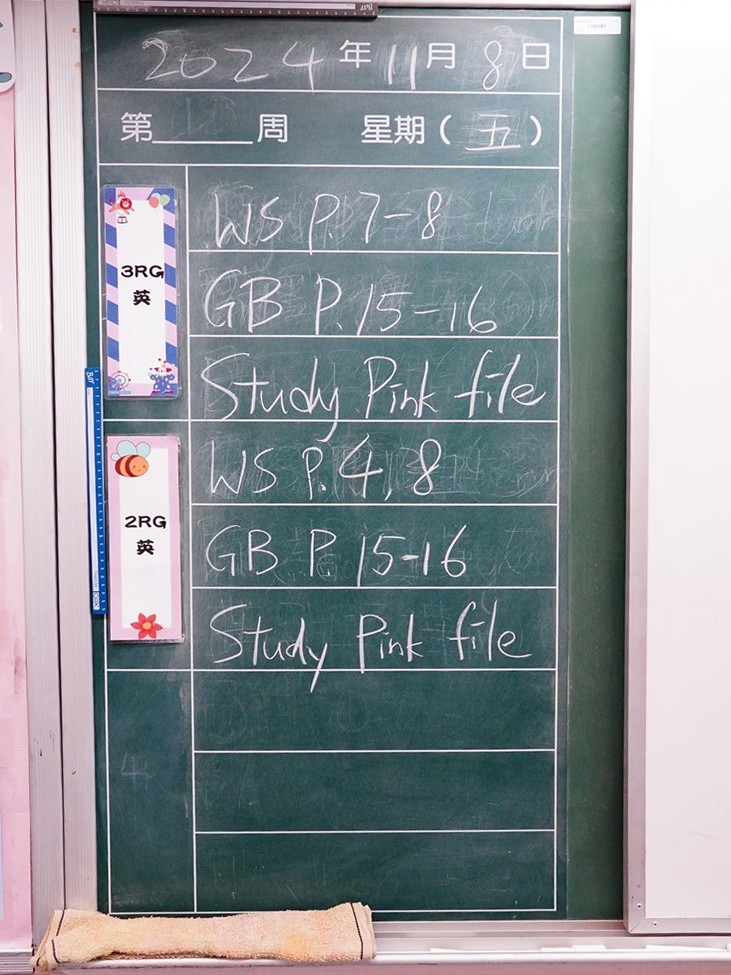 2024年11月8日
第______周 星期(五)
3RG
英
WS P.7-8
GB P.15-16
Study Pink file
2RG
英
WS P.4,8
GB P.15-16
Study Pink file